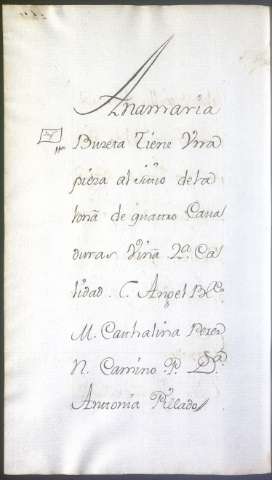 Anamaria
Bureta Tiene Vna
pieza al sitio de la
lona de quattro Caua
duras Viña 2ª Ca
lidad. C. Angel
M. Cathalina Perez
N. Camino P. Dª
Antonia